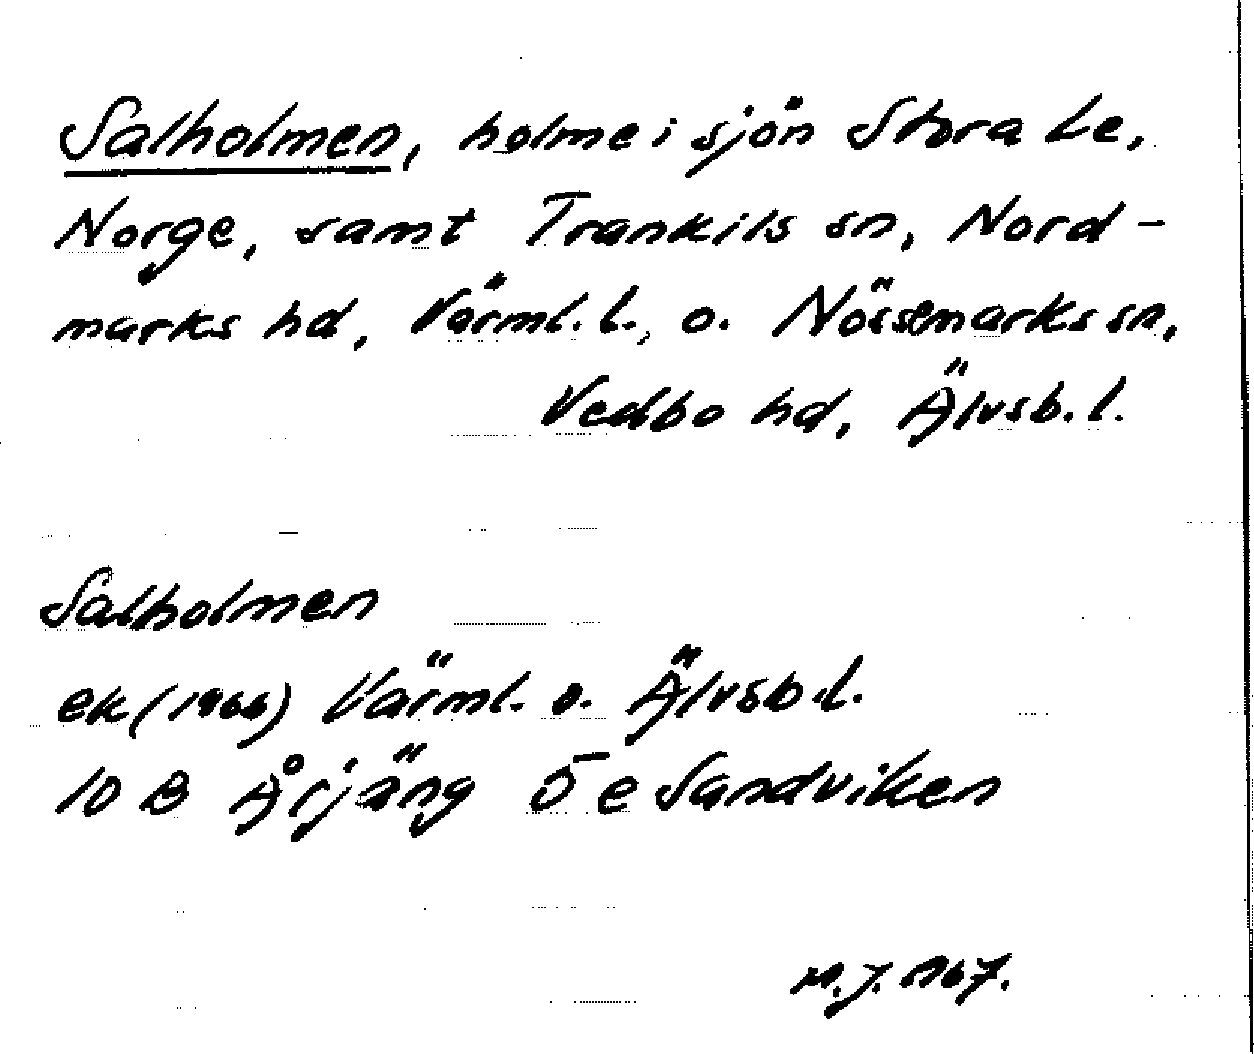 Salholmen, holme i sjön Stora Le,
Norge, samt Trankils sn, Nord-
marks hd, Värml. l., o. Nössemarks sn,
Vedbo hd, Älvsb. l.
Salholmen
ek (1966) Värml. o. Älvsb. l.
10 B Årjäng 5 e Sandviken
M.J. 1967.